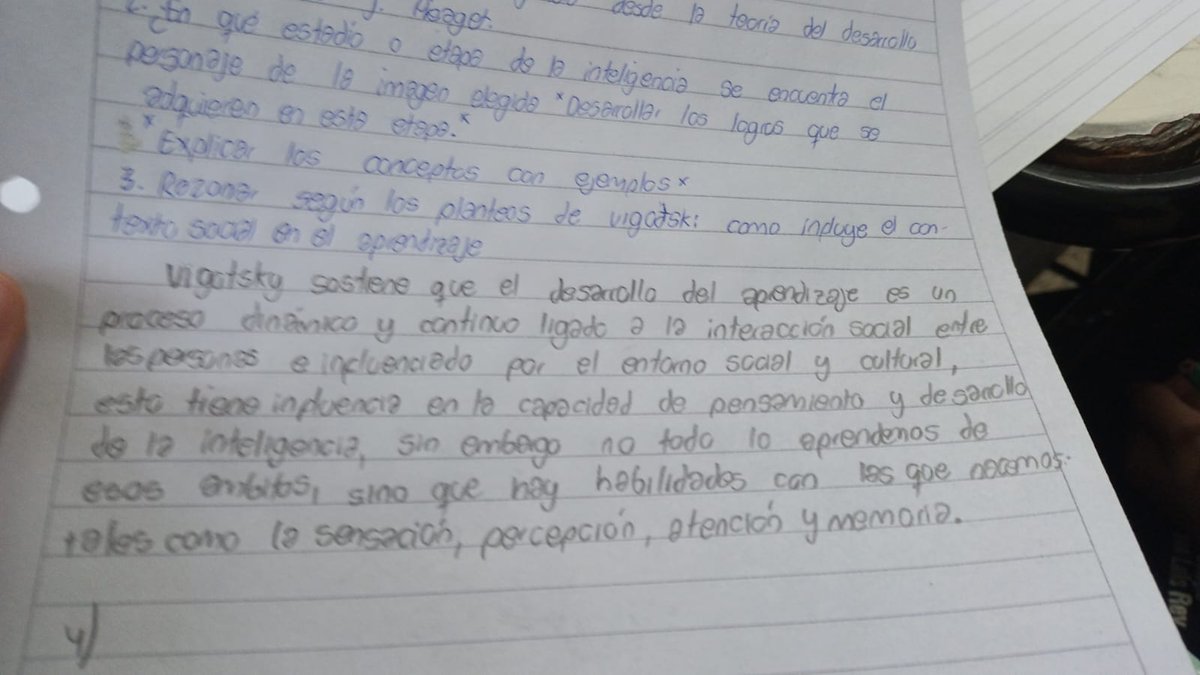 2. En que estadio o etapa de la inteligencia se encuentra el
J. Piaget. desde la teoria del desarrollo
personaje de la imagen elegida *Desarrollar los logros que se
adquieren en esta etapa.*
* Explicar los conceptos con ejemplos *
3. Razonar según los planteos de vigotski como incluye el con-
texto social en el aprendizaje
Vigotsky sostiene que el desarrollo del aprendizaje es un
proceso dinámico y continuo ligado a la interacción social entre
las personas e influenciado por el entorno social y cultural,
esto tiene influencia en la capacidad de pensamiento y desarollo
de la inteligencia, sin embago no todo lo aprendemos de
esos ambitos, sino que hay habilidades con las que nacemos.
tales como la sensación, percepción, atención y memoria.
4)